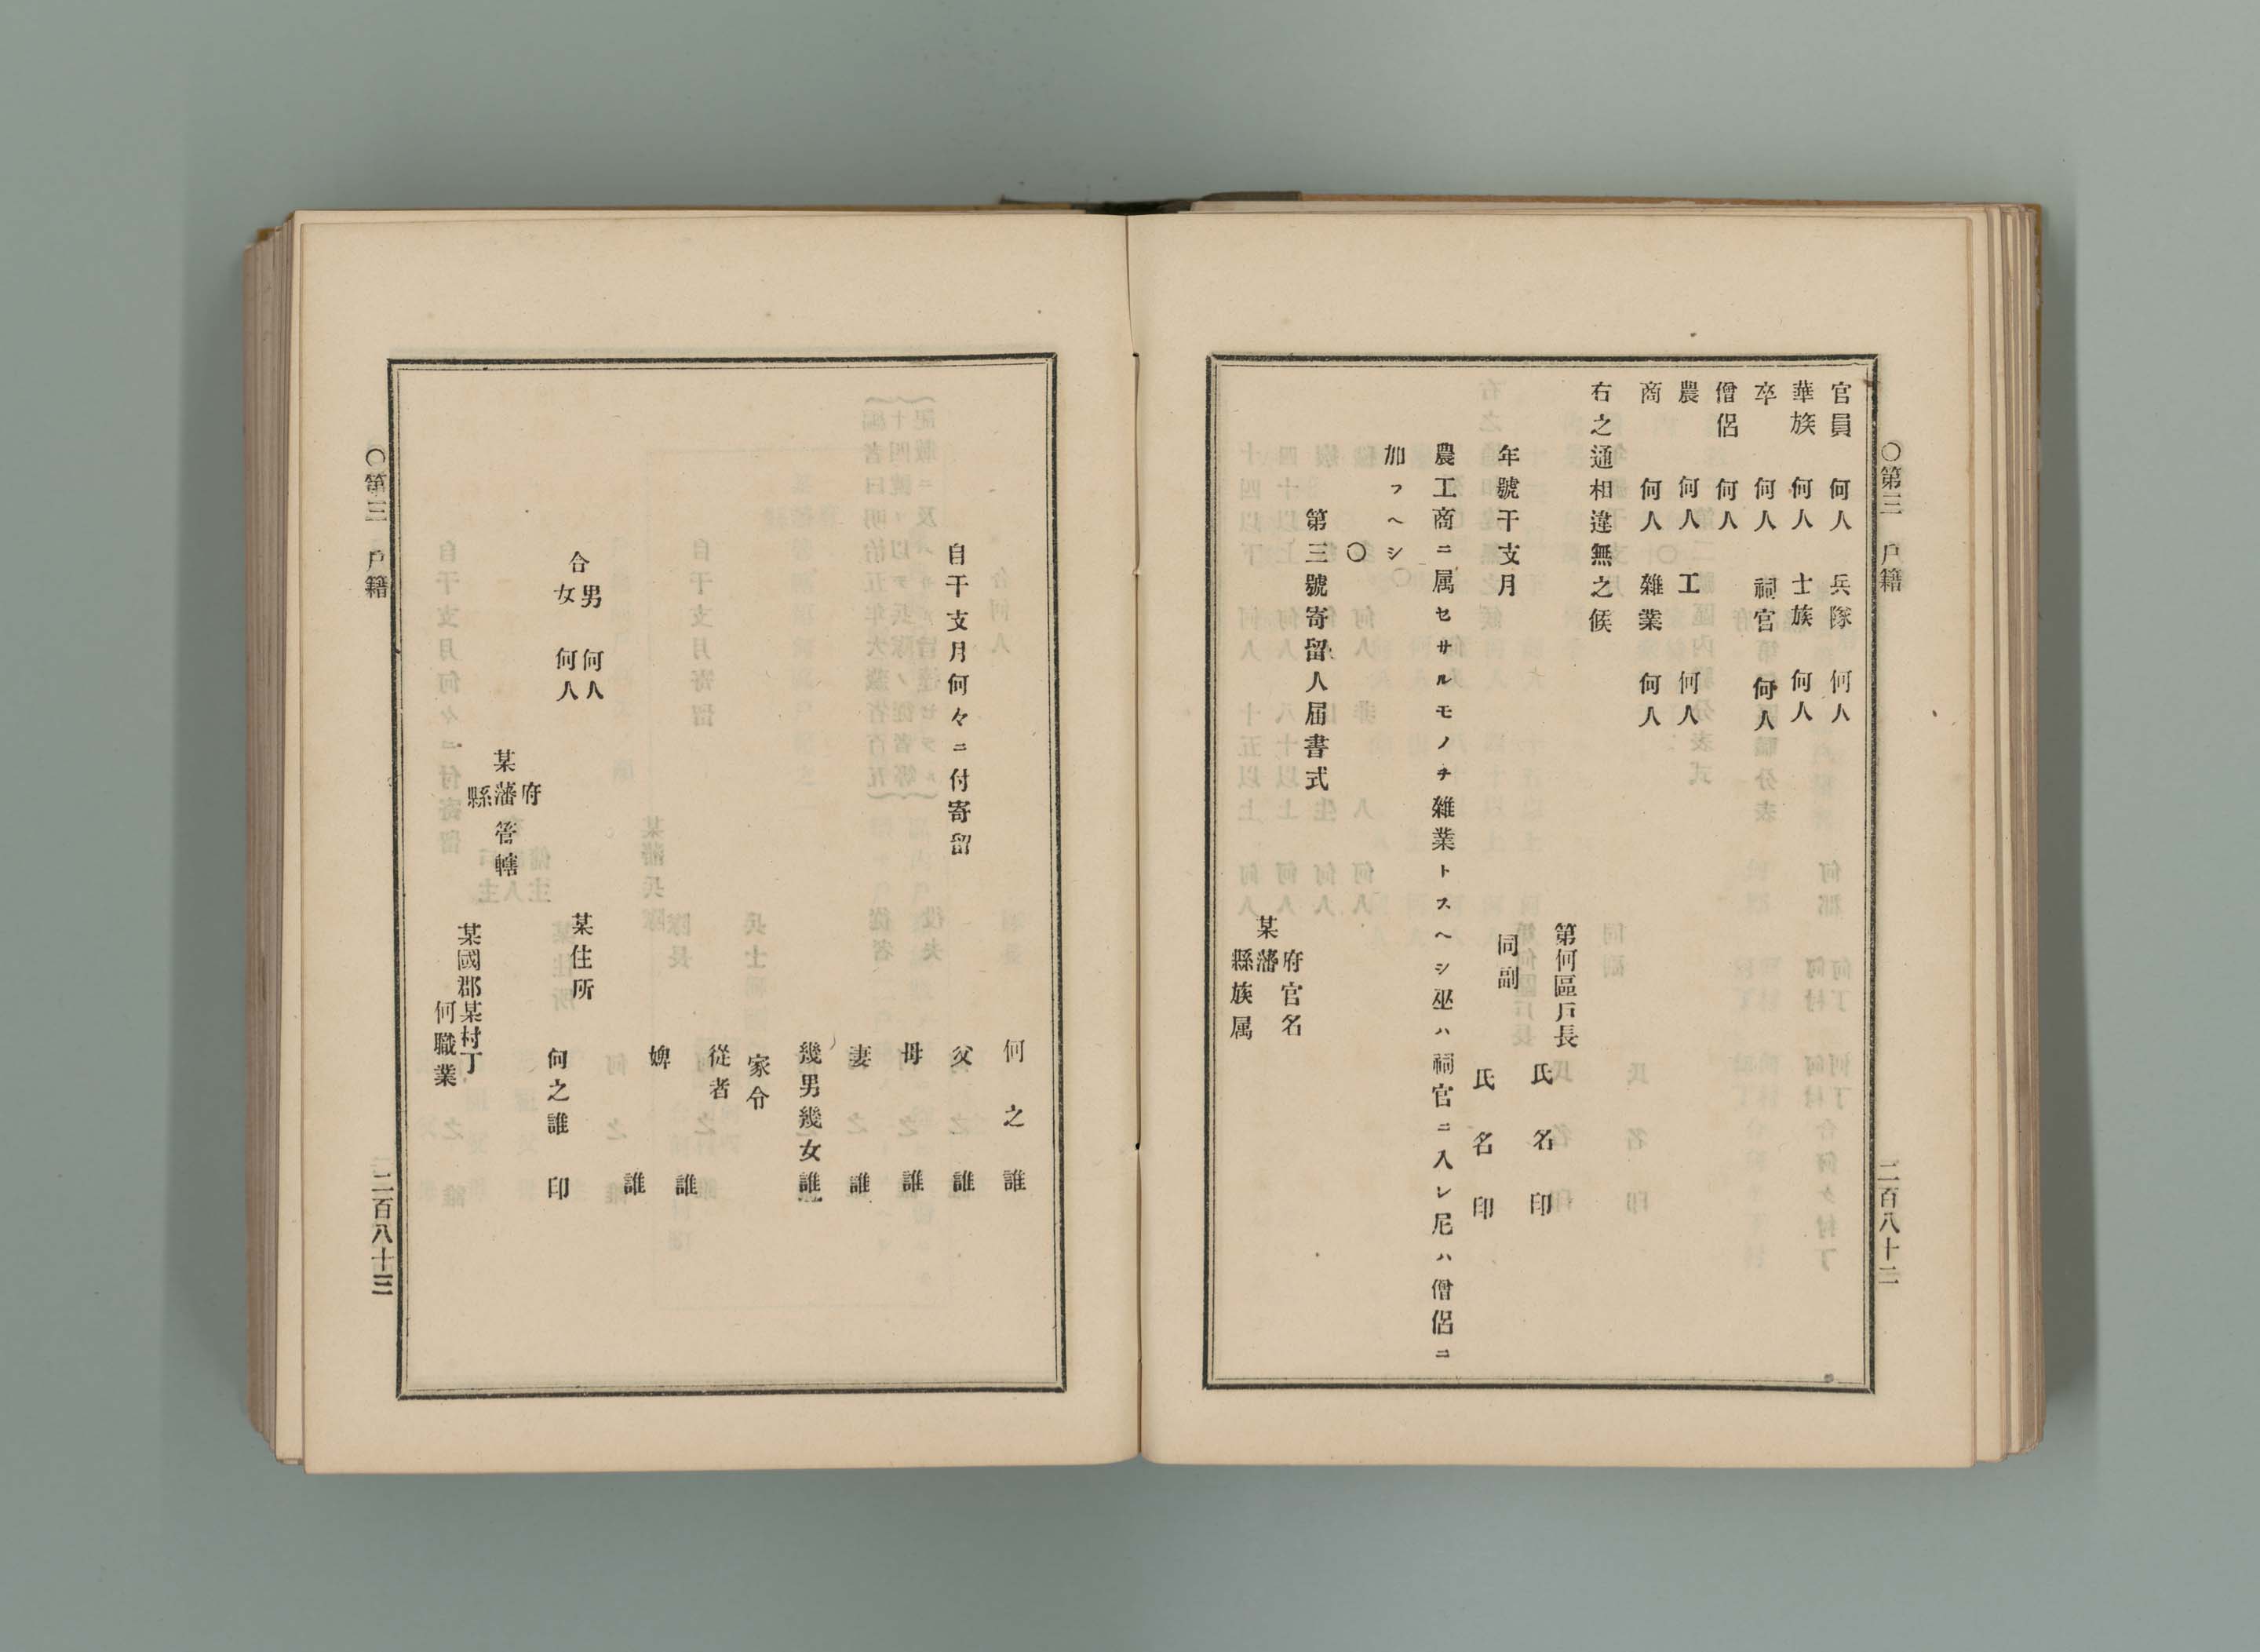 〇第三 戸籍 二百八十二
官員 何人 兵隊 何人
華族 何人 士族 何人
卒 何人 祠官 何人
僧侶 何人
農 何人 工 何人
商 何人 雜業 何人
右之通相違無之候
第何區戸長 氏名印
年號干支月 同副
氏名印
農工商ニ属セサルモノヲ雜業トスヘシ巫ハ祠官ニ入レ尼ハ僧侶ニ
加フヘシ
〇
第三號寄留人届書式
府官名
某藩
縣族属
何之誰
父 誰
自干支月何々ニ付寄留
母 誰
妻 誰
幾男幾女誰
家令
從者 誰
婢 誰
男 何人
合
女 何人
某住所
何之誰 印
府
某藩管轄
縣
某國郡某村丁
何職業
〇第三 戸籍 二百八十三